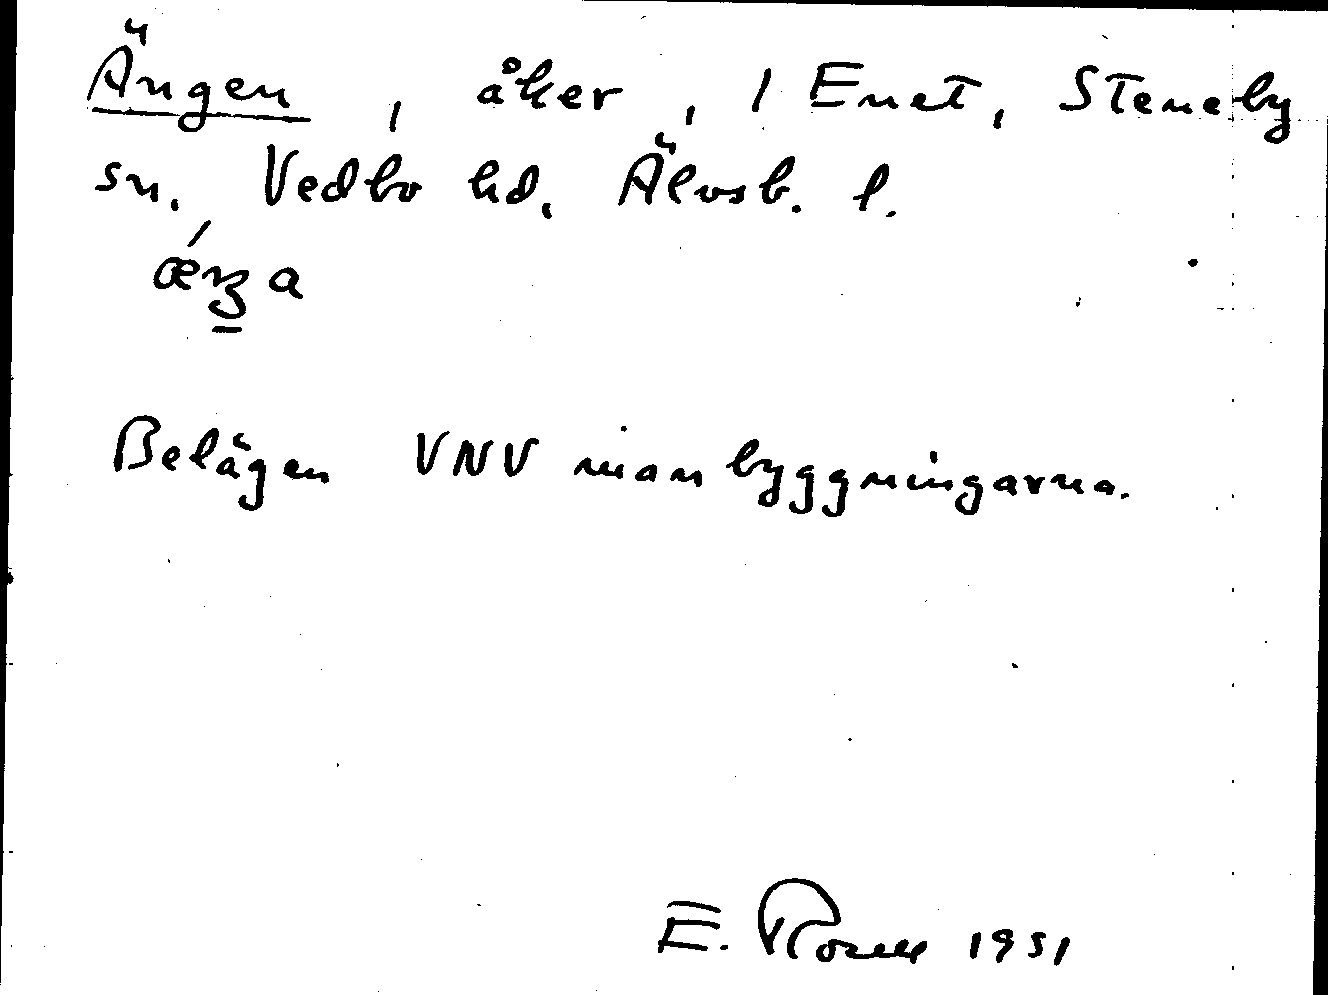 Ängen, åker, 1 Enet, Steneby
sn. Vedbo hd. Älvsb. l.
Belägen VNV manbyggningarna.
E. Rosell 1951